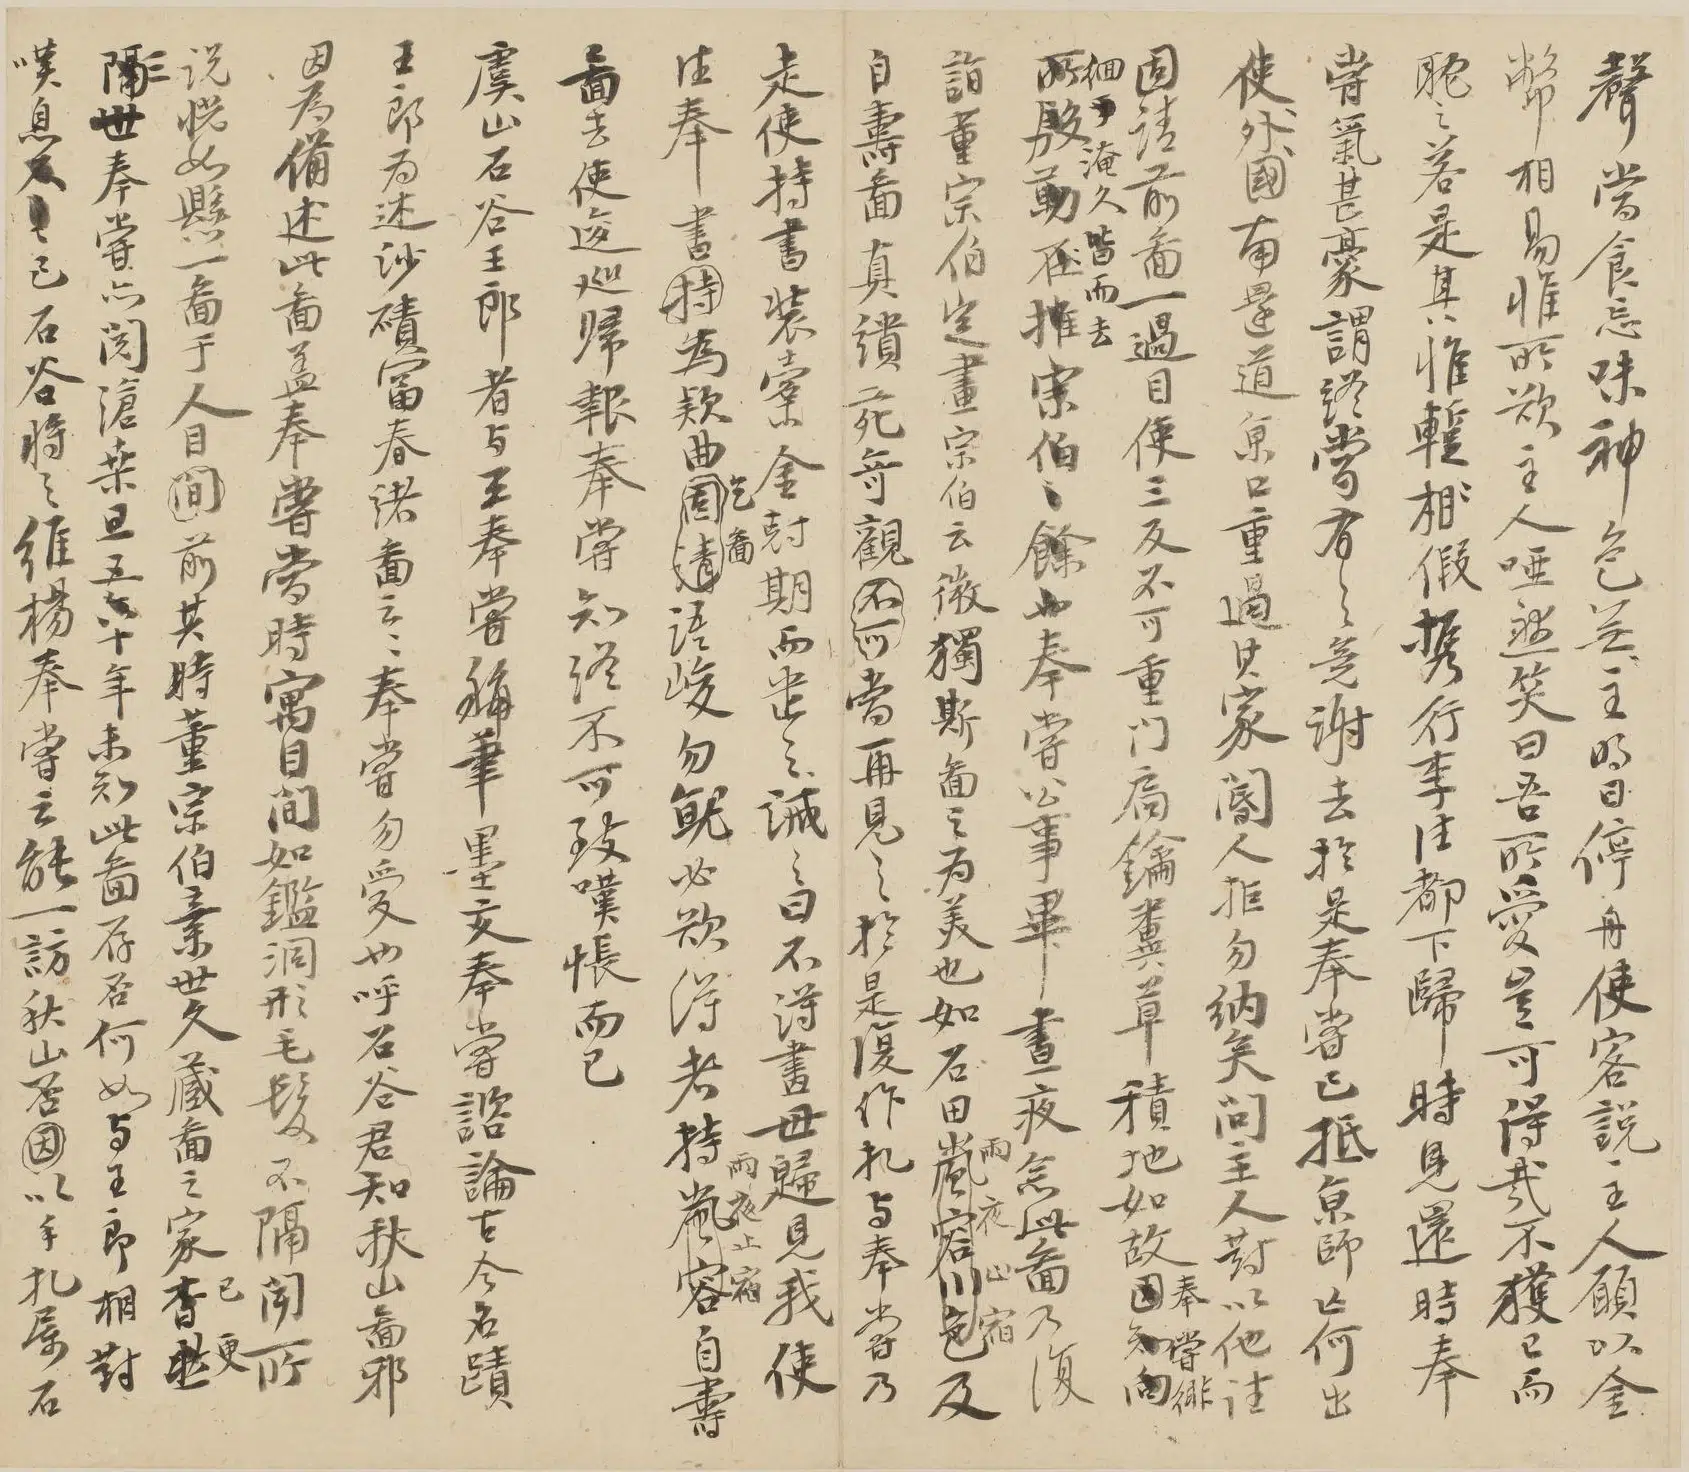 聲當食忘味神色無主明日停舟使客說主人願以金
幣相易惟所欲主人啞然笑曰吾所愛豈可得哉不獲已而
眈眈若是其惟暫相假攜行李往都下歸時見還時奉
嘗氣甚豪謂終當有之竟謝去於是奉嘗已抵京師亡何出
使外國南還道京口重過其家閽人拒勿納矣問主人對以他往
固請前圖一過目使三反不可重門扃鑰糞草積地如故因知向
奉嘗徘
徊淹久皆而去
所殷勤在擁宗伯之餘也奉嘗公事畢晝夜念此圖乃復
詣董宗伯定畫宗伯云微獨斯圖之為美也如石田嵐容川色及
雨夜止宿
自壽圖真繢苑奇觀不可當再見之於是復作札與奉嘗乃
走使持書裝橐金尅期而遣之誡之曰不得畫毋歸見我使
往奉書持為款曲固請語峻勿就必欲得者持嵐容自壽
乞圖
雨夜止宿
圖去使逡巡歸報奉嘗知終不可致嘆悵而已
虞山石谷王郎者與王奉嘗稱筆墨交奉嘗諮論古今名蹟
王郎為述沙磧富春諸圖云云奉嘗勿愛也呼石谷君知秋山圖邪
因為備述此圖蓋奉嘗當時寓目間如鑑洞形毛髮不隔聞所
說恍如懸一圖于人目間前其時董宗伯棄世久藏圖之家
已更三
隔世奉嘗亦閱滄桑且五六十年未知此圖存否何如與王郎相對
嘆息已石谷將之維楊奉嘗云能一訪秋山否因以手札屬石